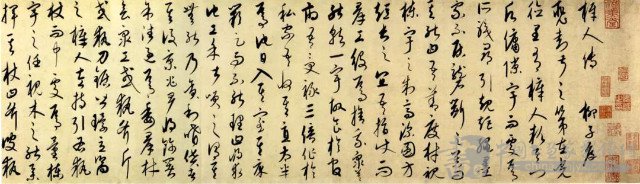 梓人傳 柳子厚
裴封叔之第在光
德里有梓人款其門
願傭隙宇而處焉
所職尋引規矩繩墨
家不居礱斲之器問
其能曰吾善度材視
棟宇之制高深圓方
短長之宜吾指使而
群工役焉捨我衆莫
能就一宇故食於官
府吾受祿三倍作於
私家吾收其直太半
焉他日入其室其床
闕足而不能理曰將求
他工余甚笑之謂其
無能而貪祿嗜貨者
其後京兆尹將飾官署
余往過焉委群材
會衆工或執斧斤
或執刀鋸皆環立嚮
之梓人左持引右執
杖而中處焉量棟
宇之任視木之能舉
揮其杖曰斧彼執